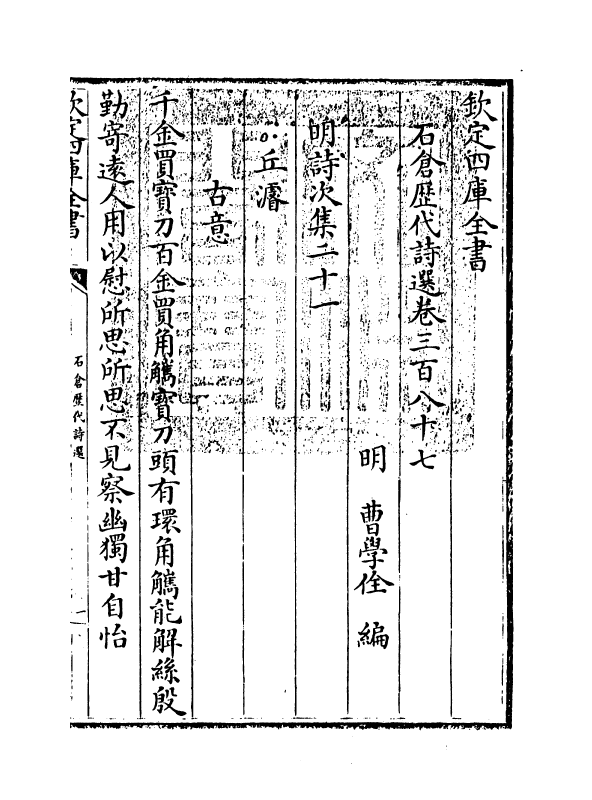 欽定四庫全書
石倉歴代詩選卷三百八十七
明 曹學佺 編
明詩次集二十一
丘濬
古意
千金買寶刀百金買角觿寶刀頭有環角觿能解絲殷
勤寄遠人用以慰所思所思不見察幽獨甘自怡
欽定四庫全書
石倉歷代詩選
一